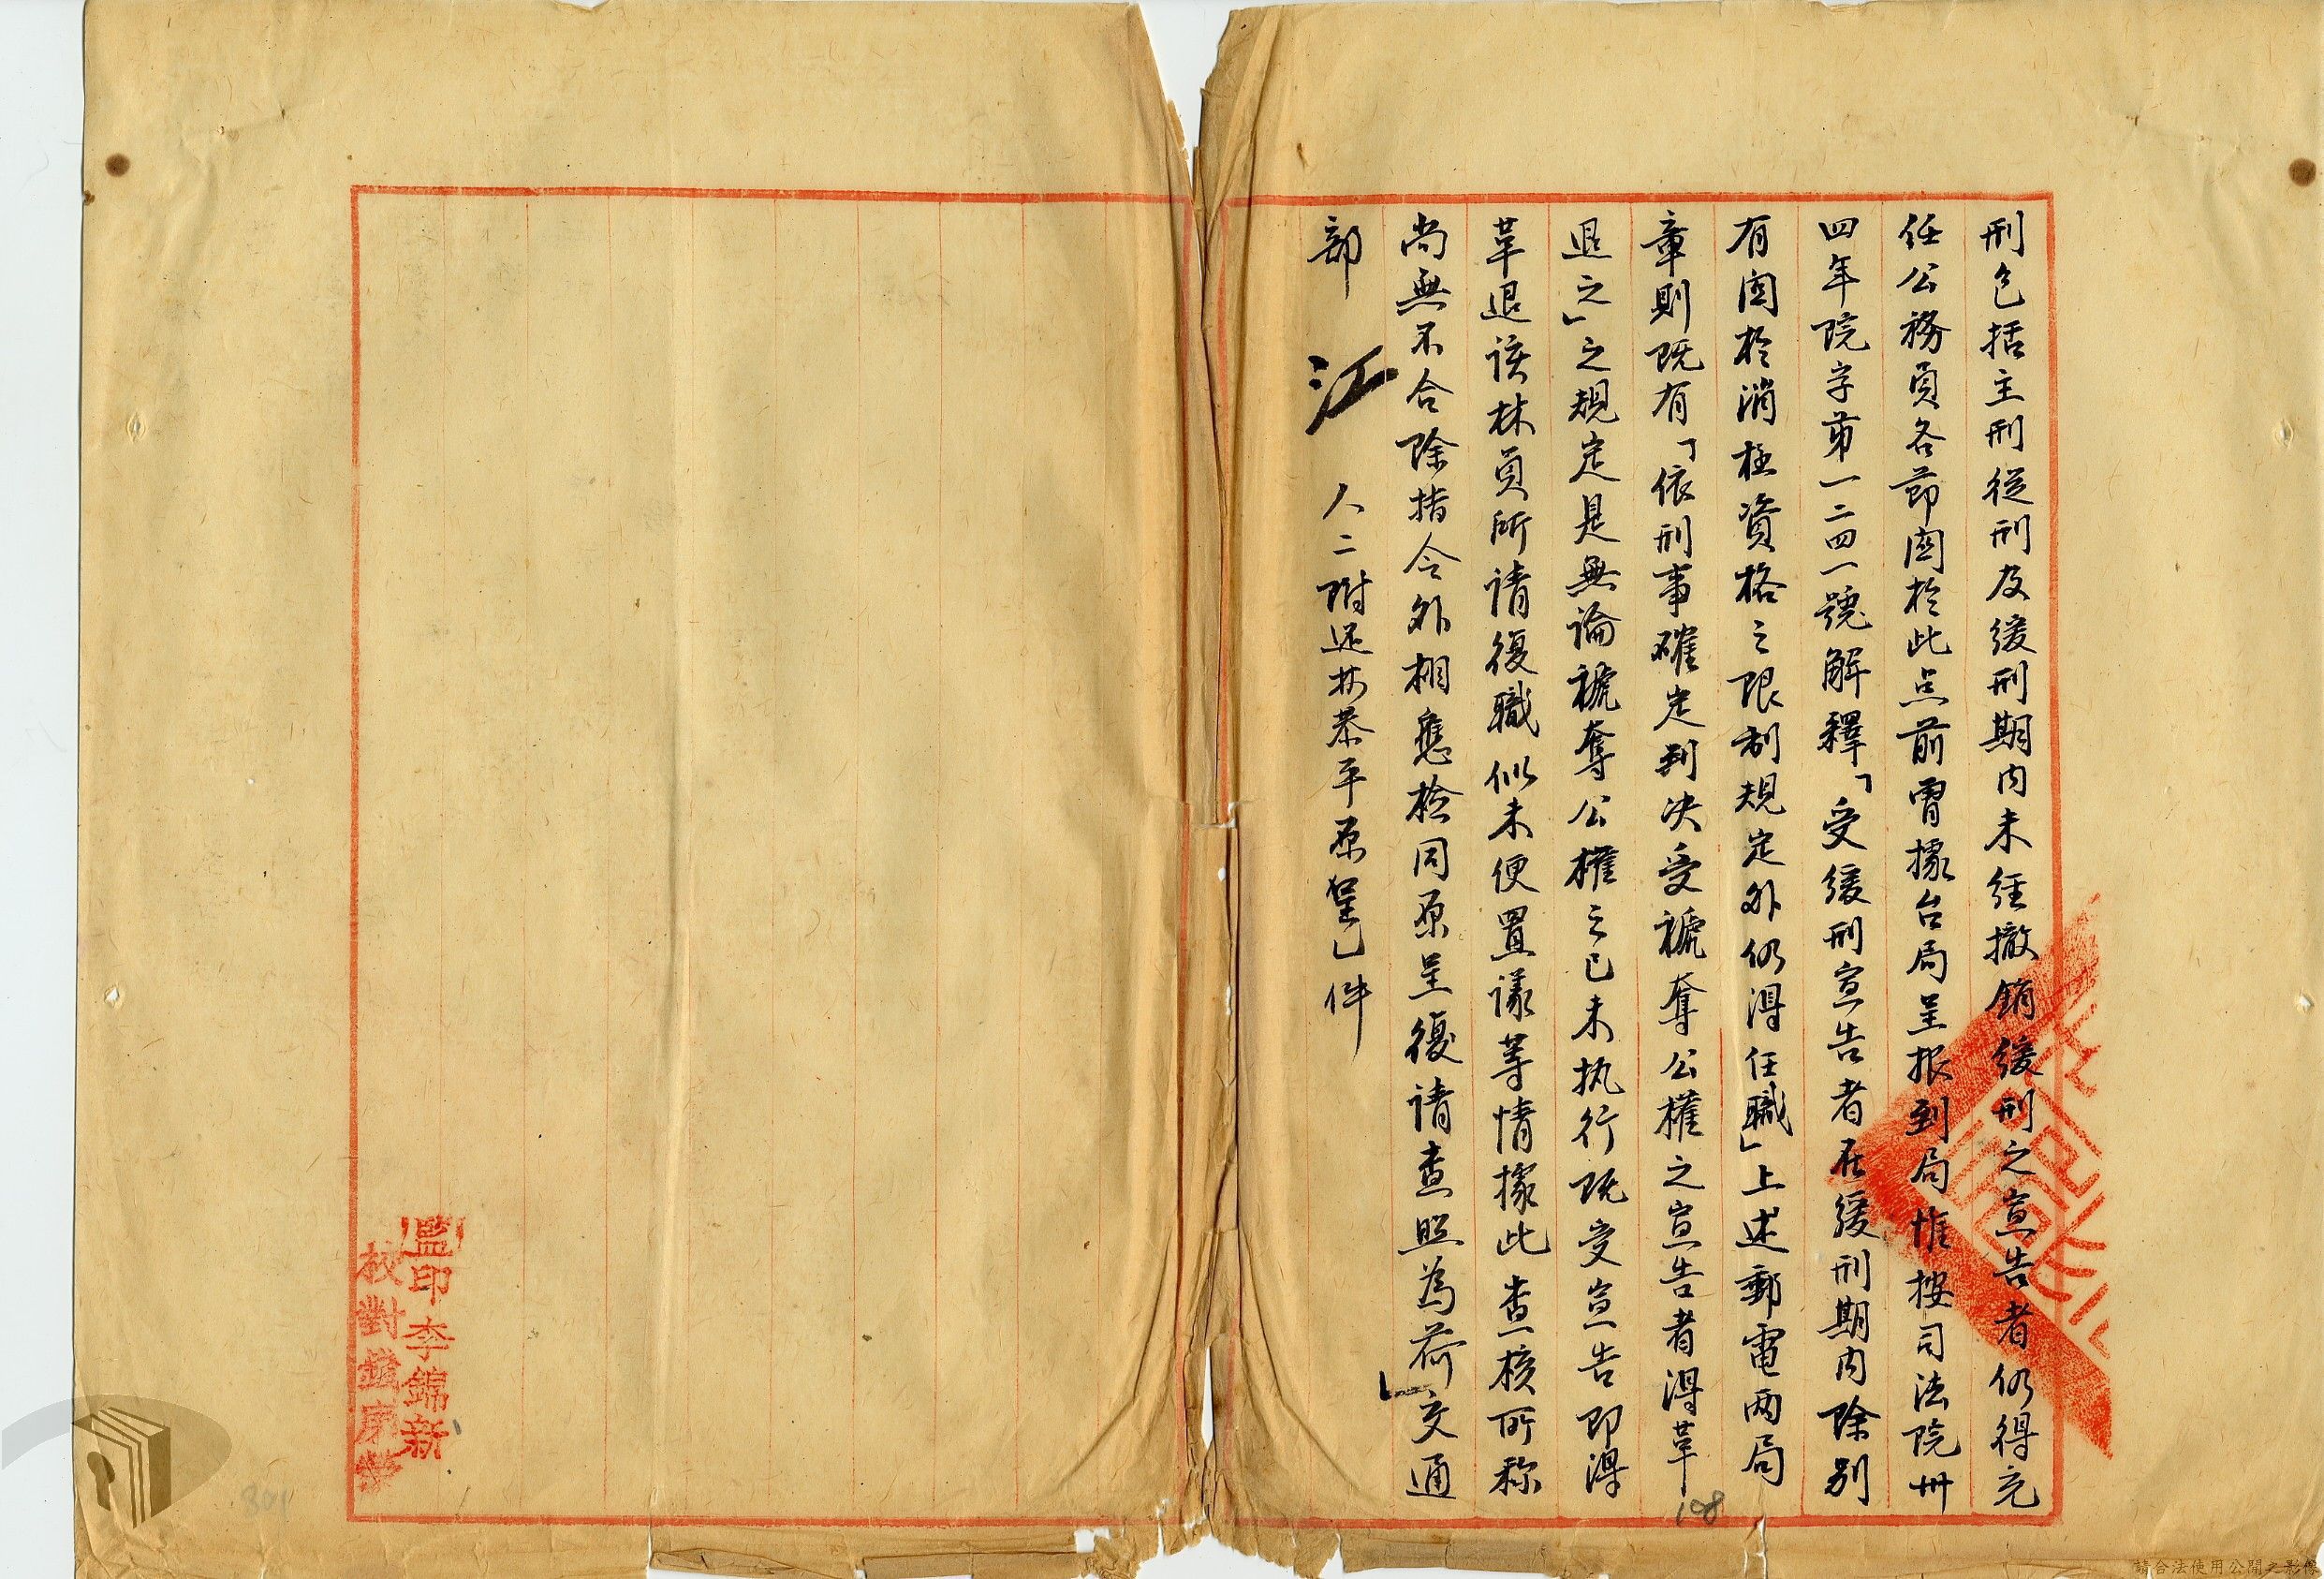 刑包括主刑從刑及緩刑期內未經撤銷緩刑之宣告者仍得充
任公務員各節關於此点前曾據台局呈报到局惟按司法院卅
四年院字第一二四一號解釋「受緩刑宣告者在緩刑期内除別
有関於消極資格之限制規定外仍得任職」上述郵電两局
章則既有「依刑事確定判决受褫奪公權之宣告者得革
退之」之規定是無論褫奪公權之已未执行既受宣告即得
革退该林員所请復職似未便置議等情據此查核所称
尚無不合除指令外相應检同原呈復请查照為荷」交通
部 江 人二附还林恭平原呈乙件
監印李錦新
校對
108
請合法使用公開之影像